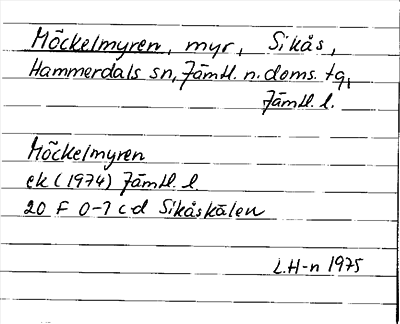 Möckelmyren, myr, Sikås,
Hammerdals sn, Jämtl. n. doms. tg,
Jämtl. l.
Möckelmyren
ek (1974) Jämtl. l.
20 F 0-1 c-d Sikåskälen
L.H-n 1975